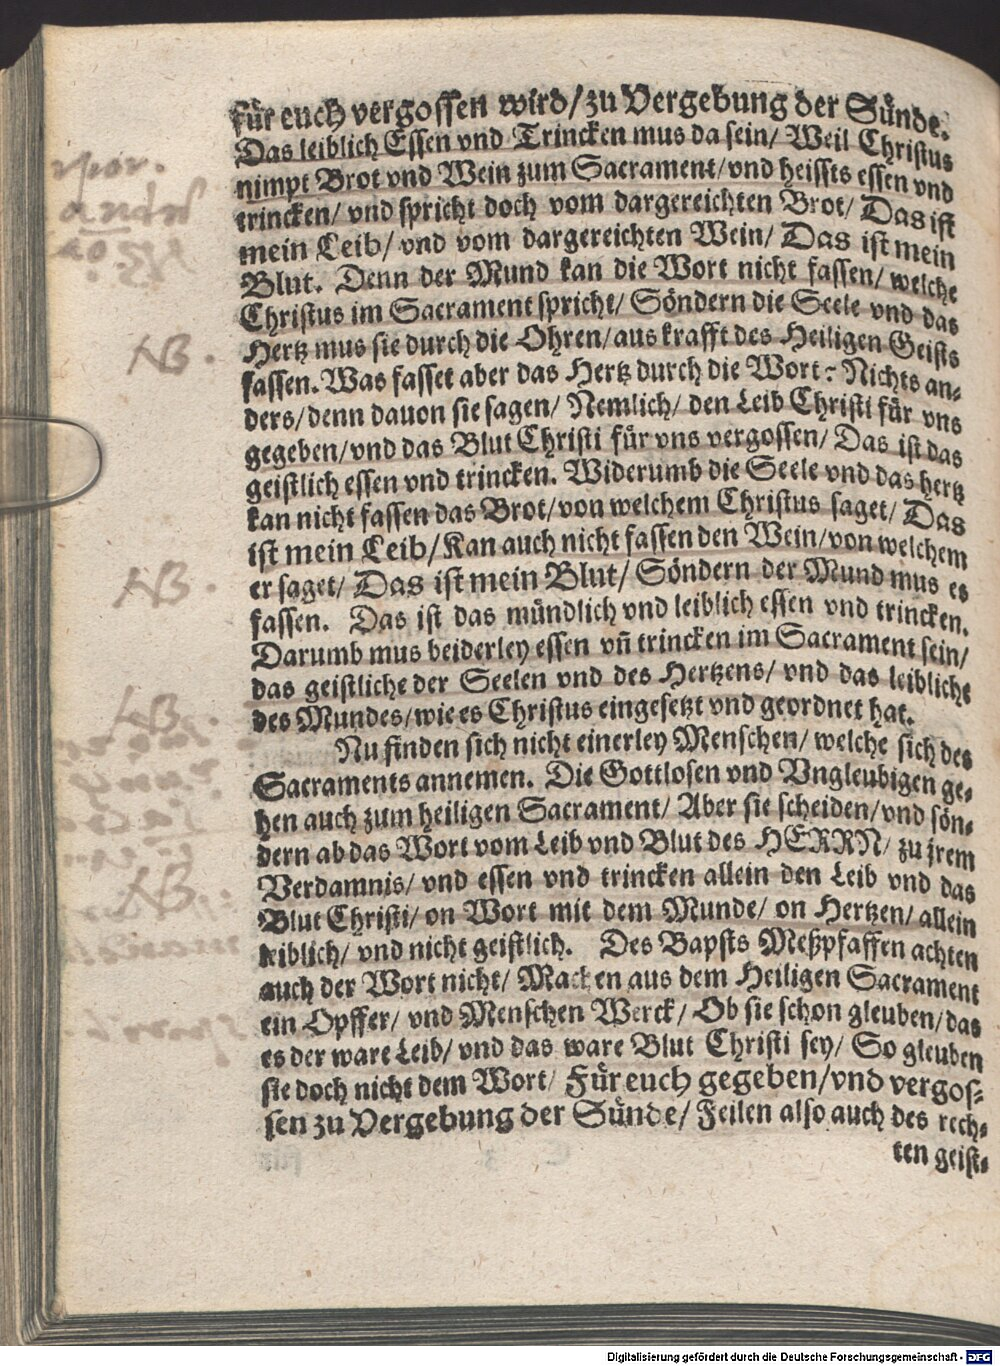 für euch vergossen wird/ zu Vergebung der Sünde.
Das leiblich Essen vnd Trincken mus da sein/ Weil Christus
nimpt Brot vnd Wein zum Sacrament/ vnd heissts essen vnd
trincken/ vnd spricht doch vom dargereichten Brot/ Das ist
mein Leib/ vnd vom dargereichten Wein/ Das ist mein
Blut. Denn der Mund kan die Wort nicht fassen/ welche
Christus im Sacrament spricht/ Söndern die Seele vnd das
NB.
Hertz mus sie durch die Ohren/ aus krafft des Heiligen Geists
fassen. Was fasset aber das Hertz durch die Wort: Nichts an-
ders/ denn dauon sie sagen/ Nemlich/ den Leib Christi für vns
gegeben/ vnd das Blut Christi für vns vergossen/ Das ist das
geistlich essen vnd trincken. Widerumb die Seele vnd das hertz
kan nicht fassen das Brot/ von welchem Christus saget/ Das
ist mein Leib/ Kan auch nicht fassen den Wein/ von welchem
NB.
er saget/ Das ist mein Blut/ Söndern der Mund mus es
fassen. Das ist das mündlich vnd leiblich essen vnd trincken.
Darumb mus beiderley essen vñ trincken im Sacrament sein/
das geistliche der Seelen vnd des Hertzens/ vnd das leibliche
NB.
des Mundes/ wie es Christus eingesetzt vnd geordnet hat.
Nu finden sich nicht einerley Menschen/ welche sich des
Sacraments annemen. Die Gottlosen vnd Vngleubigen ge-
hen auch zum heiligen Sacrament/ Aber sie scheiden/ vnd sön-
dern ab das Wort vom Leib vnd Blut des HERRN/ zu jrem
NB.
Verdamnis/ vnd essen vnd trincken allein den Leib vnd das
Blut Christi/ on Wort mit dem Munde/ on Hertzen/ allein
leiblich/ vnd nicht geistlich. Des Bapsts Meßpfaffen achten
auch der Wort nicht/ Machen aus dem Heiligen Sacrament
ein Opffer/ vnd Menschen Werck/ Ob sie schon gleuben/ das
es der ware Leib/ vnd das ware Blut Christi sey/ So gleuben
sie doch nicht dem Wort/ Für euch gegeben/ vnd vergos-
sen zu Vergebung der Sünde/ Feilen also auch des rech-
ten geist-
Digitalisierung gefördert durch die Deutsche Forschungsgemeinschaft - DFG